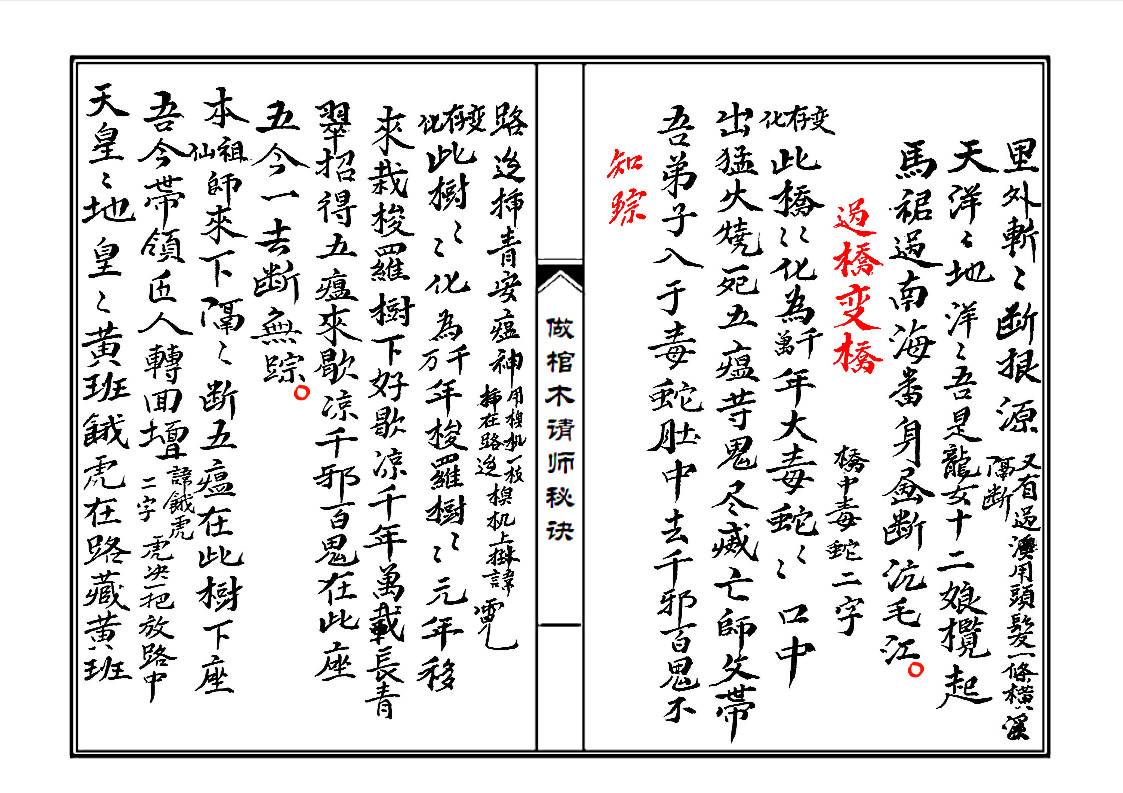 里外斬〻断根源 又有過澳用頭髮一條橫溪隔断
天洋〻地洋〻吾是龍女十二娘攬起
馬裙過南海番身禹断沆毛江
過橋变橋 橋中毒蛇二字
变存化此橋〻化為千萬年大毒蛇〻口中
出猛火燒死五瘟苷鬼尽威亡師父帶
吾弟子入于毒蛇肚中去千邪百鬼不
知踪
做棺木请师秘诀
路边揷青安瘟神 用楔机一枝揷在路边楔机上諱
变存化此樹〻化為千万年梭羅樹〻元年移
來栽梭羅樹下好歇凉千年萬載長青
翠招得五瘟來歇凉千邪百鬼在此座
五今一去断無踪
本祖仙師來下隔〻断五瘟在此樹下座
吾今帶領匠人轉回壇 諱餓虎二字虎决一把放路中
天皇〻地皇〻黃班餓虎在路藏黃班